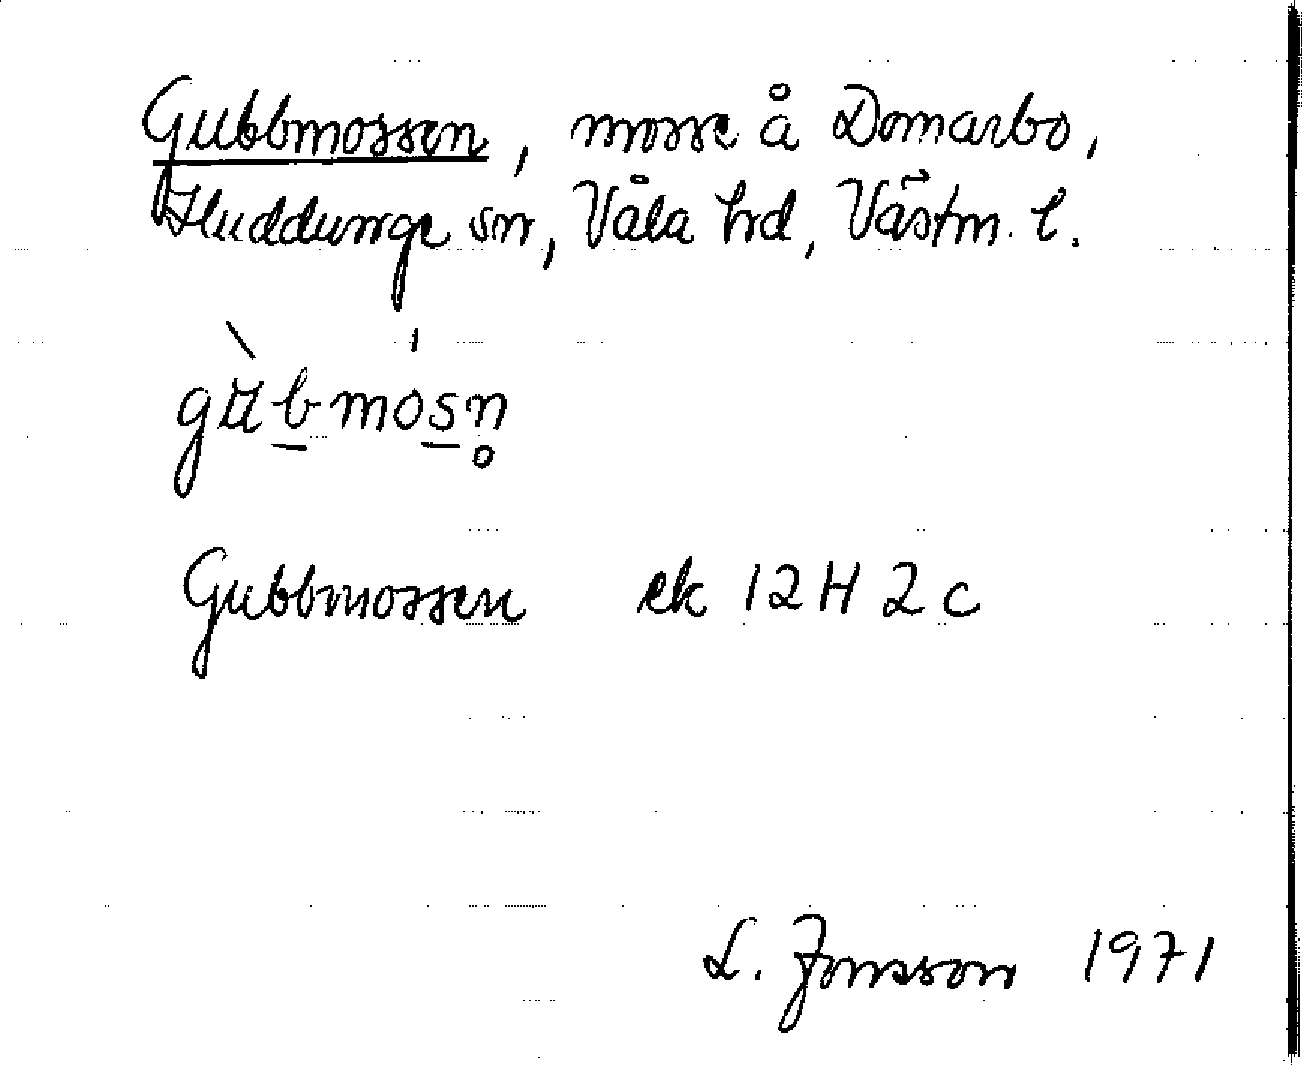 Gubbmossen, mosse å Domarbo,
Huddunge sn, Våla hd, Västm. l.
Gubbmossen ek 12H 2c
L. Jonsson 1971